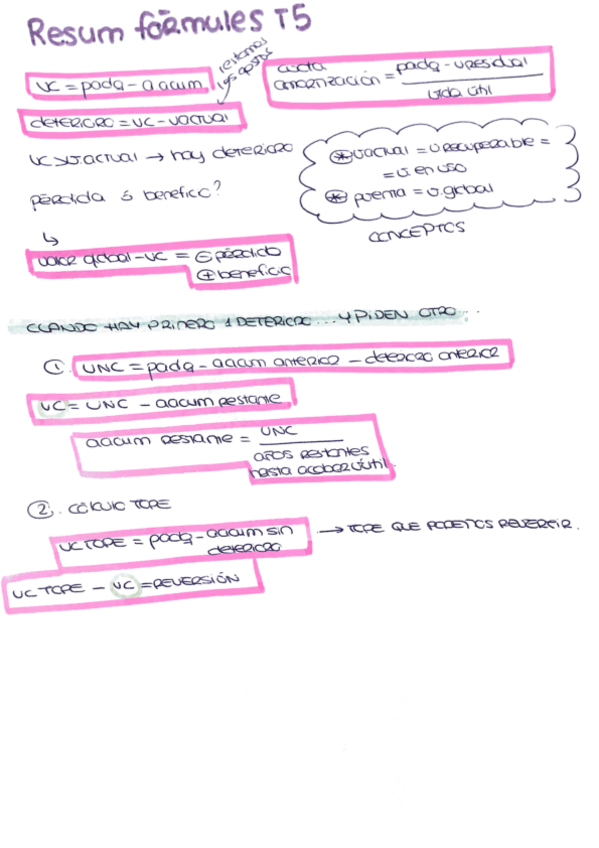 Resum fórmules T5
VC = padq - aacum
cuota amortización = padq - Vresidual / vida útil
deterioro = VC - Vactual
VC > V.actual → hay deterioro
* Vactual = V recuperable =
= V. en uso
* pventa = V. global
CONCEPTOS
pérdida ó benefici?
↳
valor global - VC = ⊖ pérdida
⊕ beneficis
CUANDO HAY PRIMERO 1 DETERIORO... Y PIDEN OTRO...
①. VNC = padq - aacum anterior - deterioro anterior
VC = VNC - aacum restante
aacum restante = VNC / años restantes
hasta acabar V.útil.
②. CÁLCULO TOPE
VC TOPE = padq - aacum sin
deterioro
→ TOPE QUE PODEMOS REVERTIR.
VC TOPE - VC = REVERSIÓN